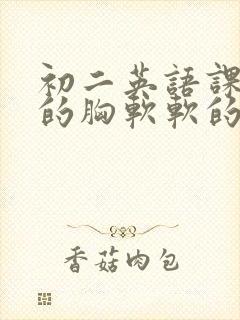 初二英語課
的胸軟軟的
香菇肉包